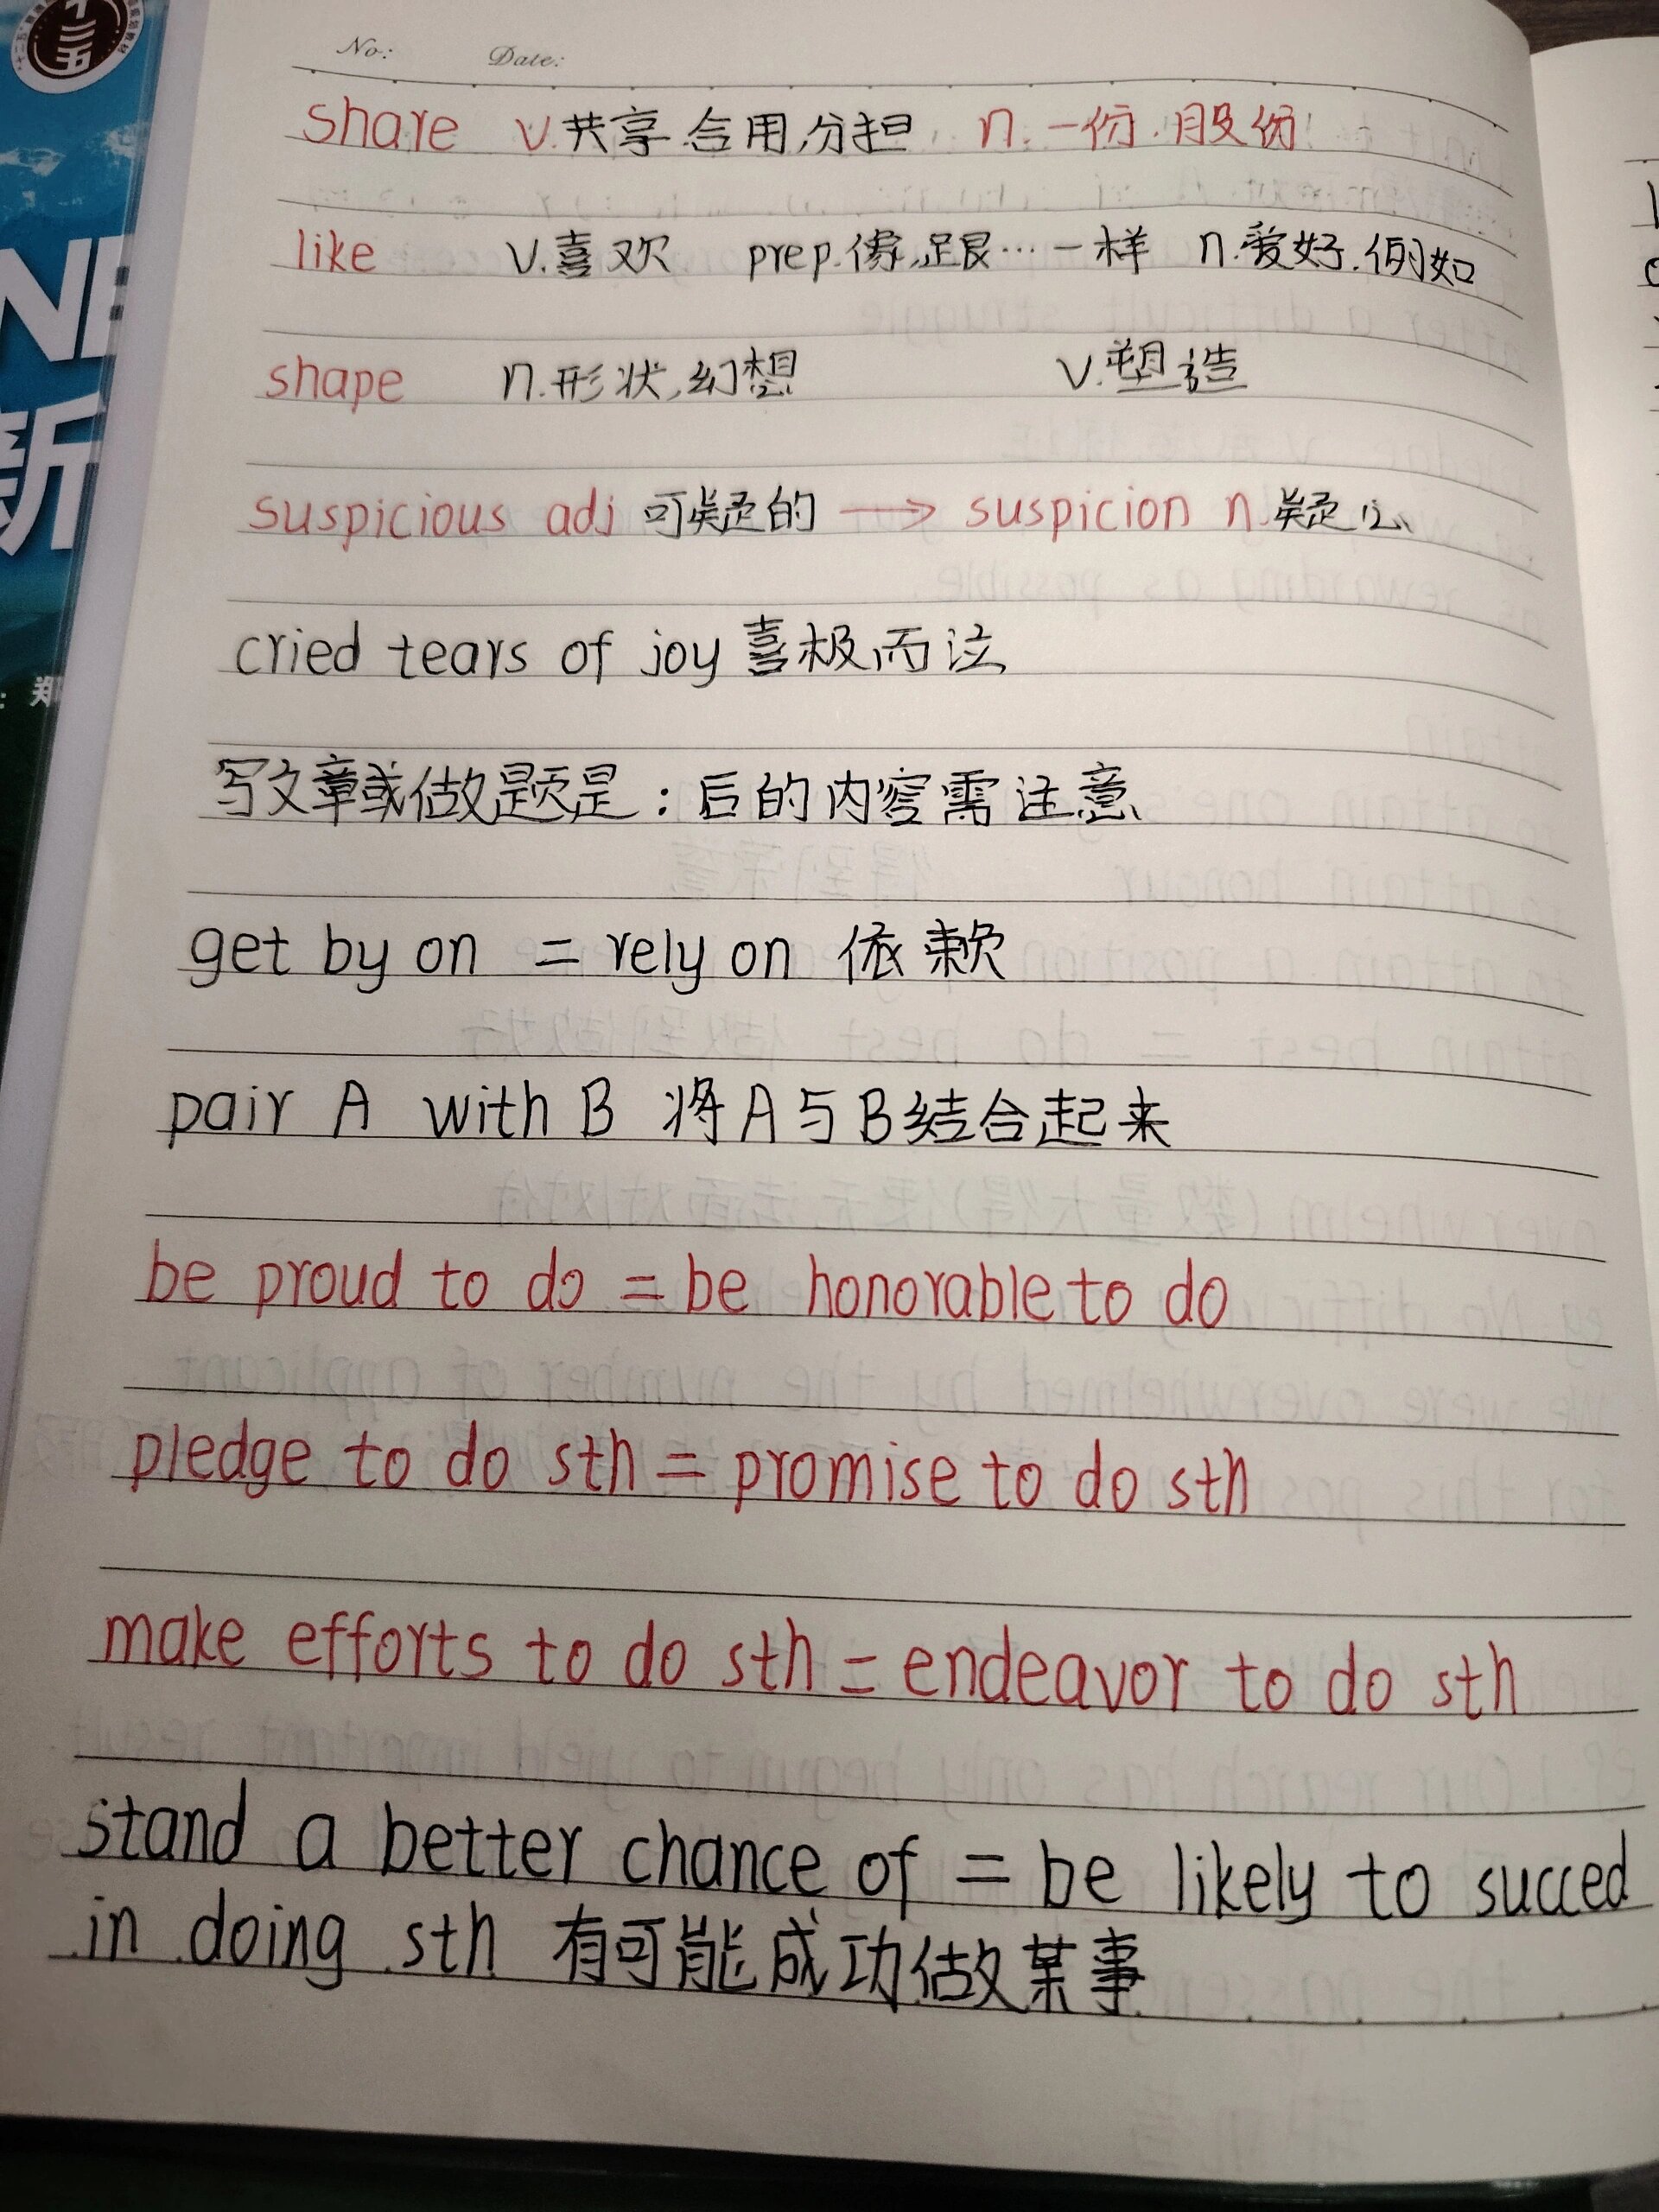 No: Date:
share v.共享.合用,分担 n.一份.股份
like v.喜欢 prep.像,跟…一样 n.爱好.例如
shape n.形状,幻想 v.塑造
suspicious adj 可疑的 → suspicion n.疑心
cried tears of joy 喜极而泣
写文章或做题是：后的内容需注意
get by on = rely on 依赖
pair A with B 将A与B结合起来
be proud to do = be honorable to do
pledge to do sth = promise to do sth
make efforts to do sth = endeavor to do sth
stand a better chance of = be likely to succed
in doing sth 有可能成功做某事
新
郑